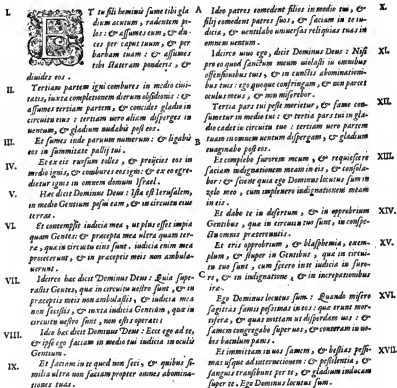 I.
ET tu fili hominis sume tibi gla
dium acutum, radentem pi-
los: & assumes eum, & du-
ces per caput tuum, & per
barbam tuam: & assumes
tibi stateram ponderis, &
diuides eos.
II.
Tertiam partem igni combures in medio ciui-
tatis, iuxta completionem dierum obsidionis: &
assumes tertiam partem, & concides gladio in
circuitu eius: tertiam uero aliam disperges in
uentum, & gladium nudabis post eos.
III.
Et sumes inde paruum numerum: & ligabis
eos in summitate pallij tui.
IV.
Et ex eis rursum tolles, & proijcies eos in
medio ignis, & combures eos igni: & ex eo egre-
dietur ignis in omnem domum Israel.
V.
Haec dicit Dominus Deus: Ista est Ierusalem,
in medio Gentium posui eam, & in circuitu eius
terras.
VI.
Et contempsit iudicia mea, ut plus esset impia
quam Gentes: & praecepta mea ultra quam ter-
rae, quae in circuitu eius sunt. iudicia enim mea
proiecerunt, & in praeceptis meis non ambula-
uerunt.
VII.
Idcirco haec dicit Dominus Deus: Quia supe-
rastis Gentes, quae in circuitu uestro sunt, & in
praeceptis meis non ambulastis, & iudicia mea
non fecistis, & iuxta iudicia Gentium, quae in
circuitu uestro sunt, non estis operati:
VIII.
Ideo haec dicit Dominus Deus: Ecce ego ad te,
& ipse ego faciam in medio tui iudicia in oculis
Gentium.
IX.
Et faciam in te quod non feci, & quibus si-
milia ultra non faciam propter omnes abomina-
tiones tuas.
A
B
C
X.
Ideo patres comedent filios in medio tui, &
filij comedent patres suos, & faciam in te iu-
dicia, & uentilabo uniuersas reliquias tuas in
omnem uentum.
XI.
Idcirco uiuo ego, dicit Dominus Deus: Nisi
pro eo quod sanctum meum uiolasti in omnibus
offensionibus tuis, & in cunctis abominationi-
bus tuis: ego quoque confringam, & non parcet
oculus meus, & non miserebor.
XII.
Tertia pars tui peste morietur, & fame con-
sumetur in medio tui: & tertia pars tui in gla-
dio cadet in circuitu tuo: tertiam uero partem
tuam in omnem uentum dispergam, & gladium
euaginabo post eos.
XIII.
Et complebo furorem meum, & requiescere
faciam indignationem meam in eis, & consola-
bor: & scient quia ego Dominus locutus sum in
zelo meo, cum impleuero indignationem meam
in eis.
XIV.
Et dabo te in desertum, & in opprobrium
Gentibus, quae in circuitu tuo sunt, in conspe-
ctu omnis praetereuntis.
XV.
Et eris opprobrium, & blasphemia, exem-
plum, & stupor in Gentibus, quae in circui-
tu tuo sunt, cum fecero inte iudicia in furo-
re, & in indignatione, & in increpationibus
irae.
XVI.
Ego Dominus locutus sum: Quando misero
sagittas famis pessimas in eos: quae erunt mor-
tiferae, & quas mittam ut disperdam uos: &
famem congregabo super uos, & conteram in uo-
bis baculum panis.
XVII.
Et immittam in uos famem, & bestias pessi-
mas usque ad internecionem: & pestilentia, &
sanguis transibunt per te, & gladium inducam
super te. Ego Dominus locutus sum.